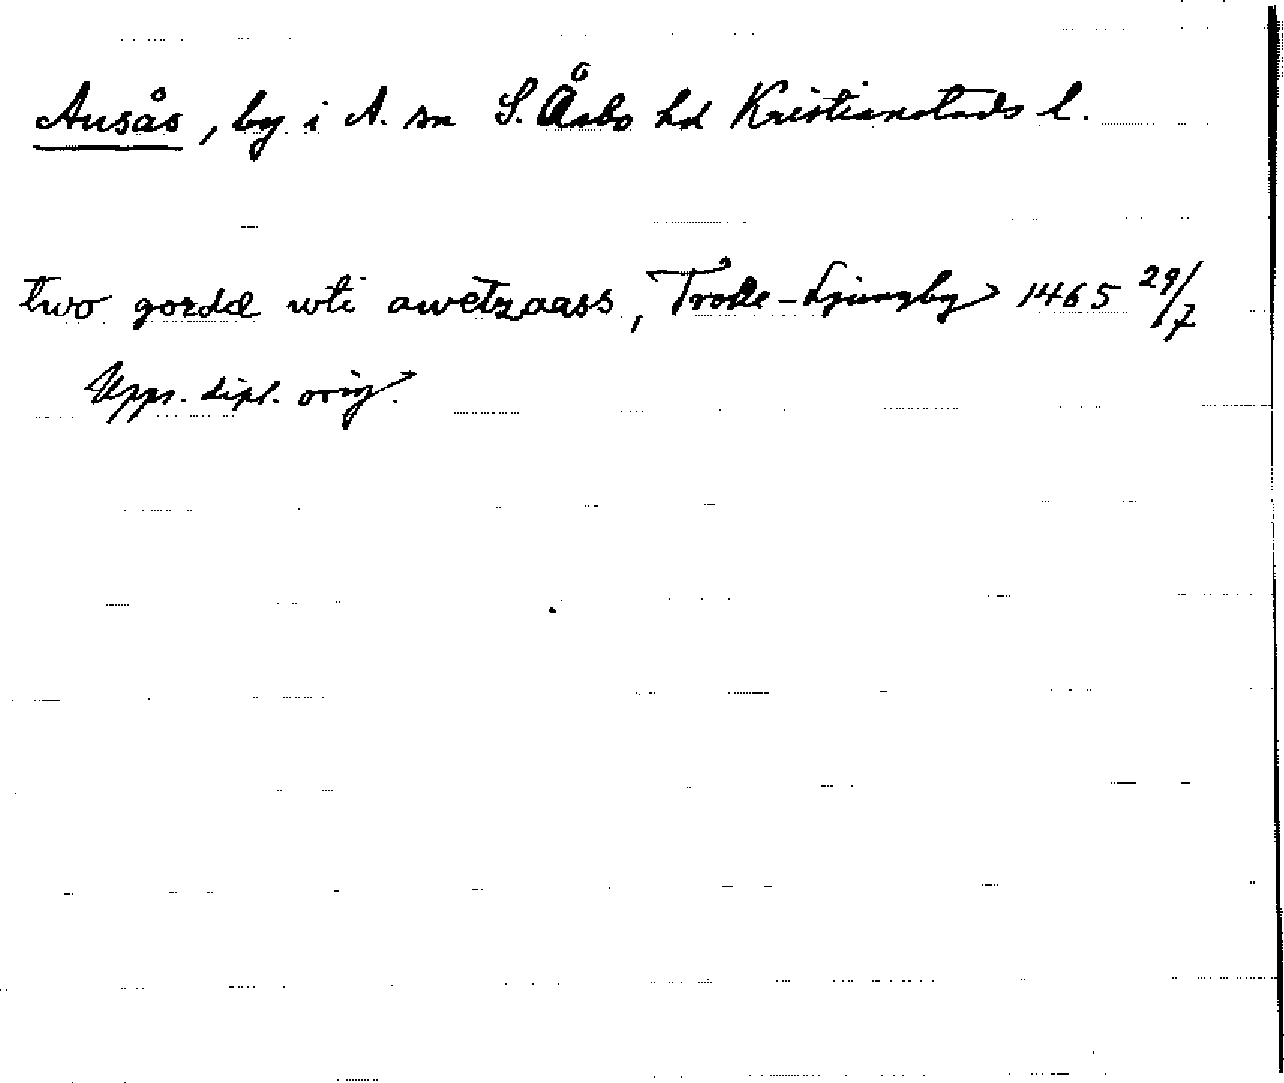 Ausås, by i A. sn S. Åsbo hd Kristianstads l.
two gordæ wti awetzaass, Trolle-Ljungby 1465 29/7
Upps. dipl. orig.